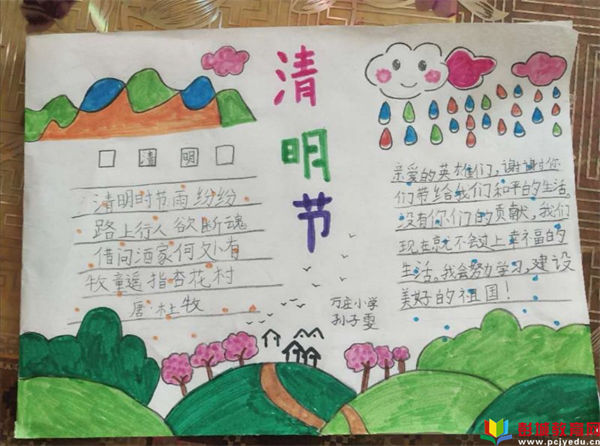 清明节
清明
清明时节雨纷纷
路上行人欲断魂
借问酒家何处有
牧童遥指杏花村
唐 杜牧
亲爱的英雄们，谢谢你
们带给我们和平的生活，
没有你们的贡献，我们
现在就不会过上幸福的
生活，我会努力学习，建设
美好的祖国！
万庄小学
孙子雯
彭城教育网
www.pcjyedu.cn